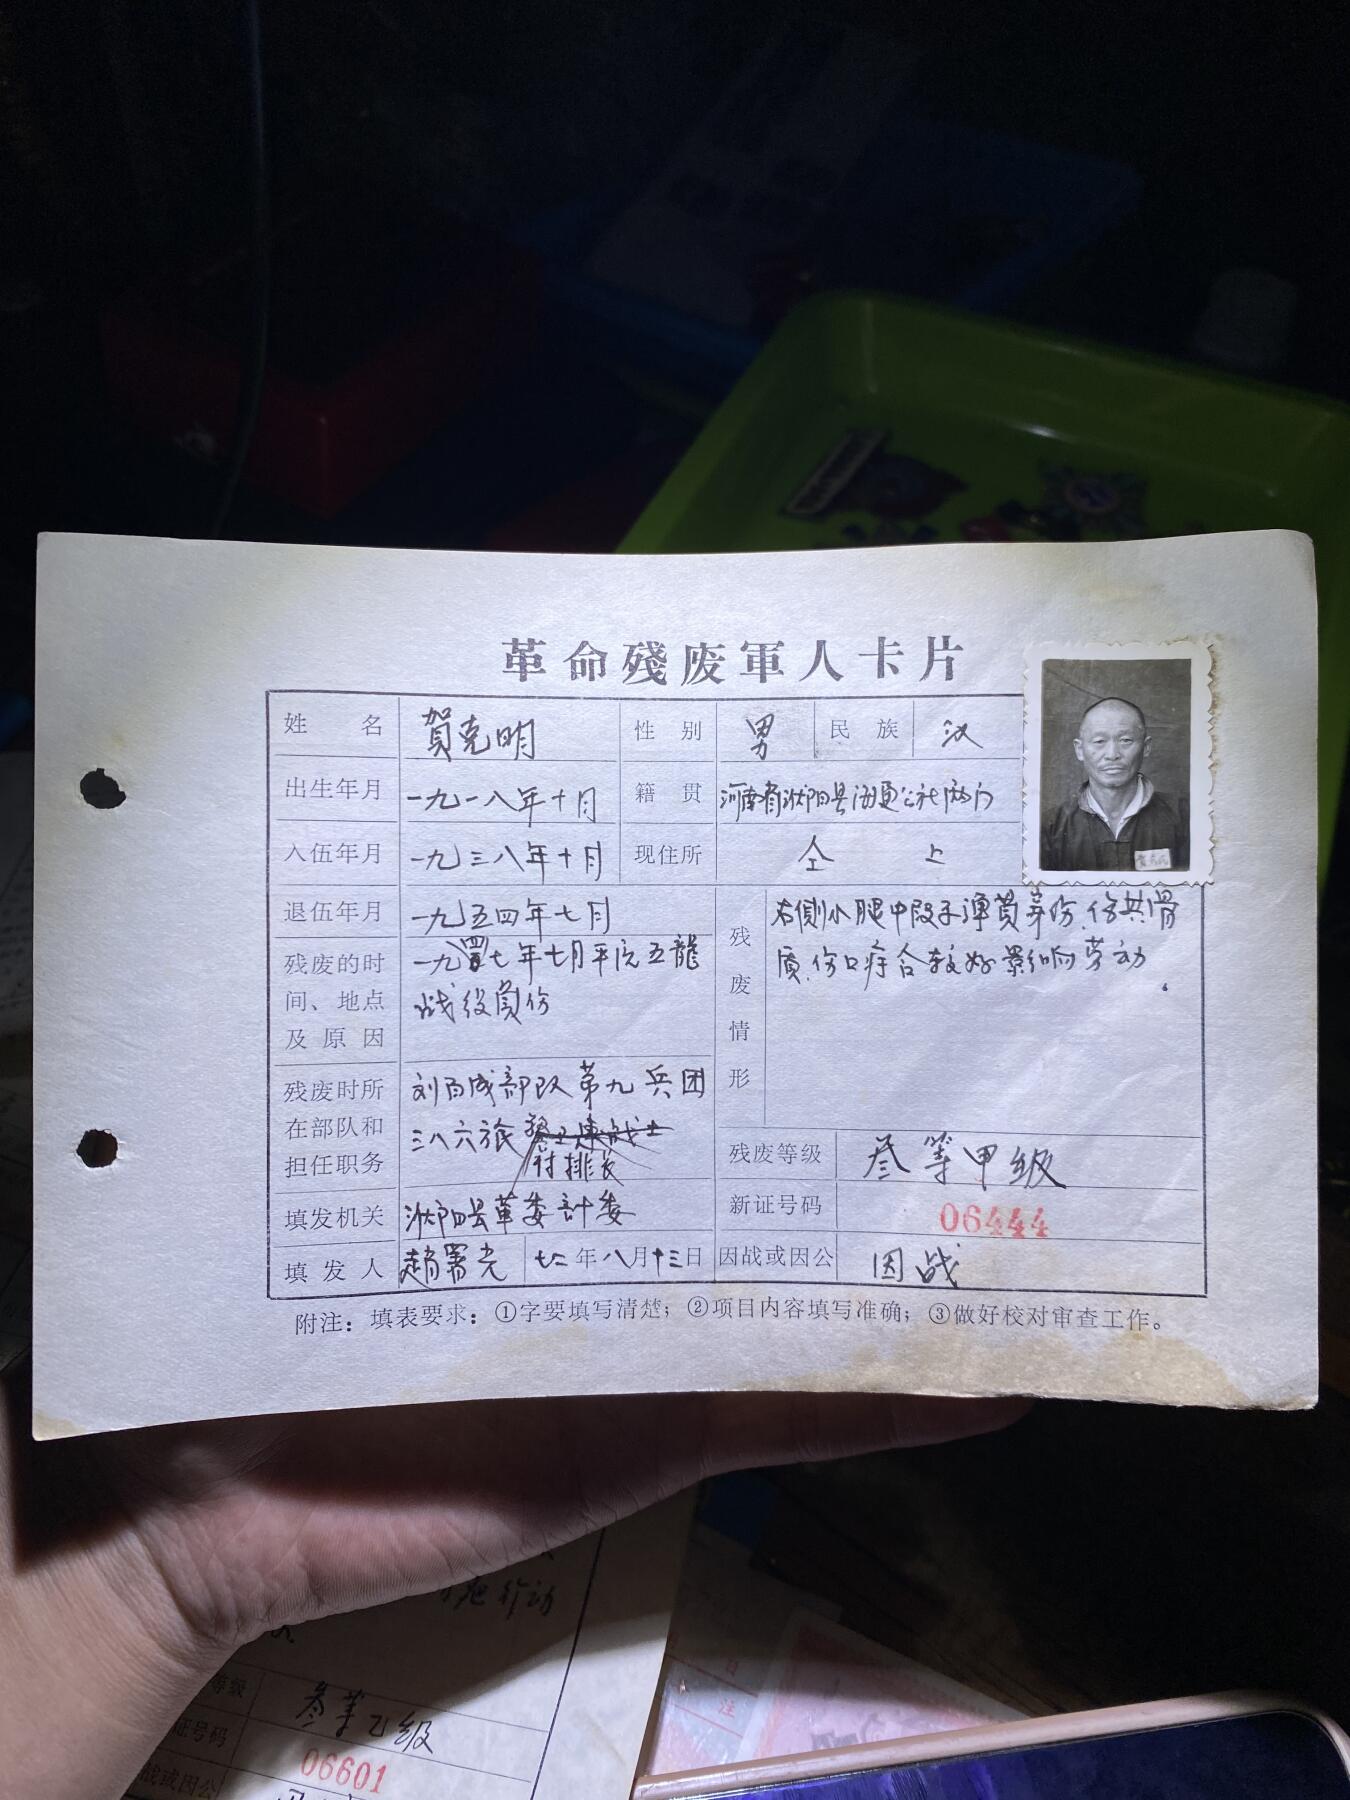 革命殘废軍人卡片
姓名 賀克明 性别 男 民族 汉
出生年月 一九一八年十月 籍贯 河南省沈邱县 公社
入伍年月 一九三八年十月 现住所 仝上
退伍年月 一九五四年七月
残废的时间、地点及原因
一九四七年七月平 五龍
战役負伤
残废情形
右側小腿中段 弹貫 伤.伤其骨
质.伤口 合较好影响劳动.
残废时所在部队和担任职务
刘百成部队第九兵团
三八六旅
付排长
残废等级 叁等甲级
填发机关 沈邱县革委計委
新证号码 06444
填发人 趙署光 七二年八月十三日 因战或因公 因战
附注：填表要求：①字要填写清楚；②项目内容填写准确；③做好校对审查工作。
行动
等级 叁等乙级
证号码 06601
战或因公
注